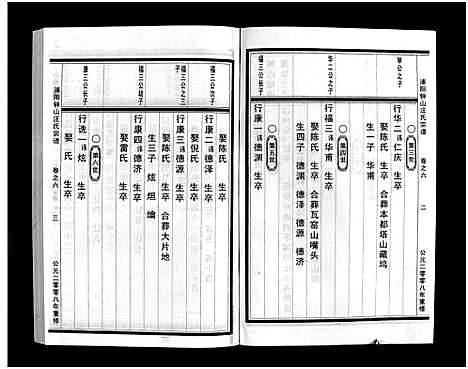 浦阳钟山汪氏宗谱 卷之六 二 公元二零零八年重修
第三世
华公之子
行华二 讳仁庆 生卒 合葬本都塔山藏坞
生一子 华甫
第四世
华二公之子
行福三 讳华甫 生卒
娶陈氏 生卒 合葬瓦窑山嘴头
生四子 德渊 德泽 德源 德济
第五世
行康一 讳德渊 生卒
娶陈氏 生卒
福三公次子
行康二 讳德泽 生卒
娶倪氏 生卒
福三公三子
行康三 讳德源 生卒
福三公幼子
行康四 讳德济 生卒
娶雷氏 生卒 合葬大片地
生三子 炫 烜 𬊤
第六世
康三公长子
行诜一 讳炫 生卒
娶 氏 生卒
浦阳钟山汪氏宗谱 卷之六 三 公元二零零八年重修